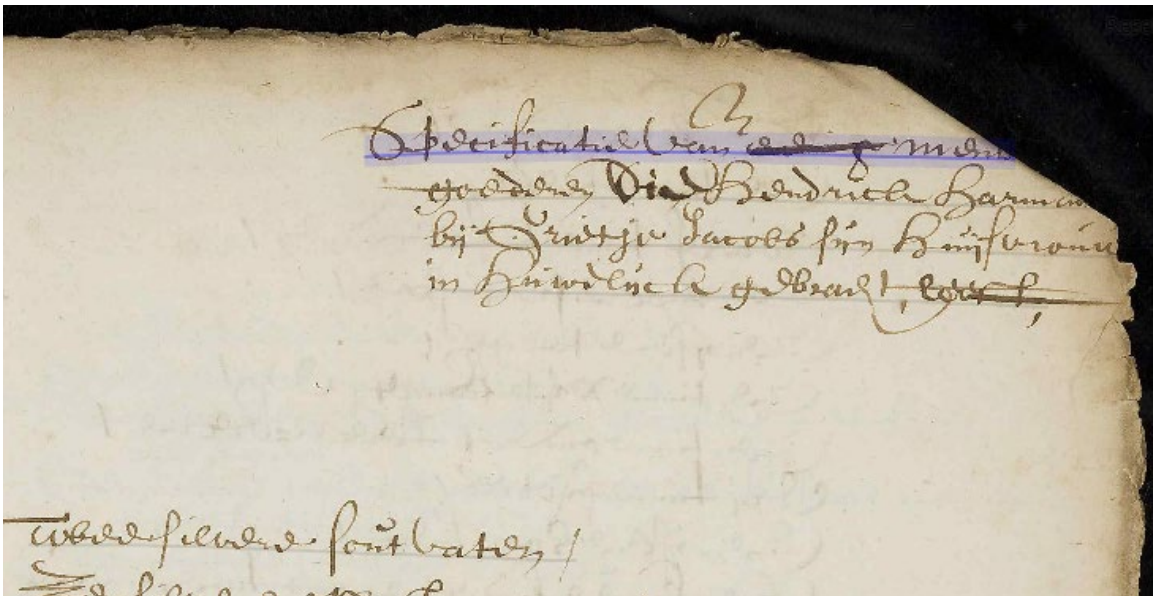 Specificatie van
goederen die Hendrick Harman
bij Trietje Jacobs sijn Huijsvrouw
in Huwelijck gebracht,
Twee silvere soutvaten /